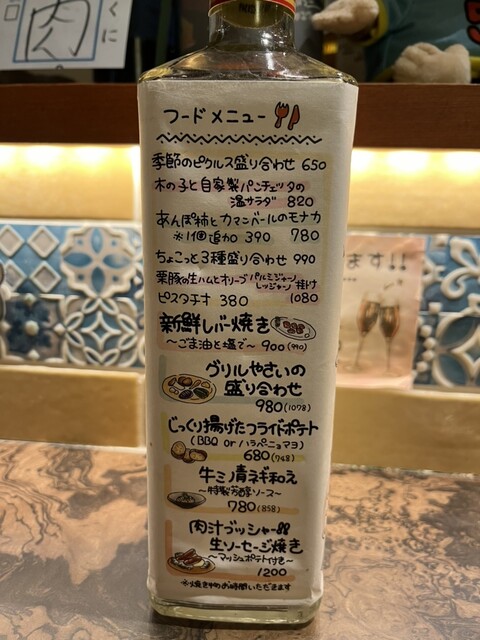 くに
肉
フードメニュー
季節のピクルス盛り合わせ 650
木の子と自家製パンチェッタの
温サラダ 820
あんぽ柿とカマンベールのモナカ
※1個追加 390 780
ちょこっと3種盛り合わせ 990
栗豚の生ハムとオリーブ パルミジャーノ
レッジャーノ 掛け
ピスタチオ 380 1080
新鮮レバー焼き
～ごま油と塩で～ 900(990)
グリルやさいの
盛り合わせ
980(1078)
じっくり揚げたフライドポテト
(BBQ or ハラペーニョマヨ)
680(748)
牛ミノ青ネギ和え
～特製芳醇ソース～
780(858)
肉汁ブッシャー!!
生ソーセージ焼き
～マッシュポテト付き～
1200
※焼き物お時間いただきます
ます!!